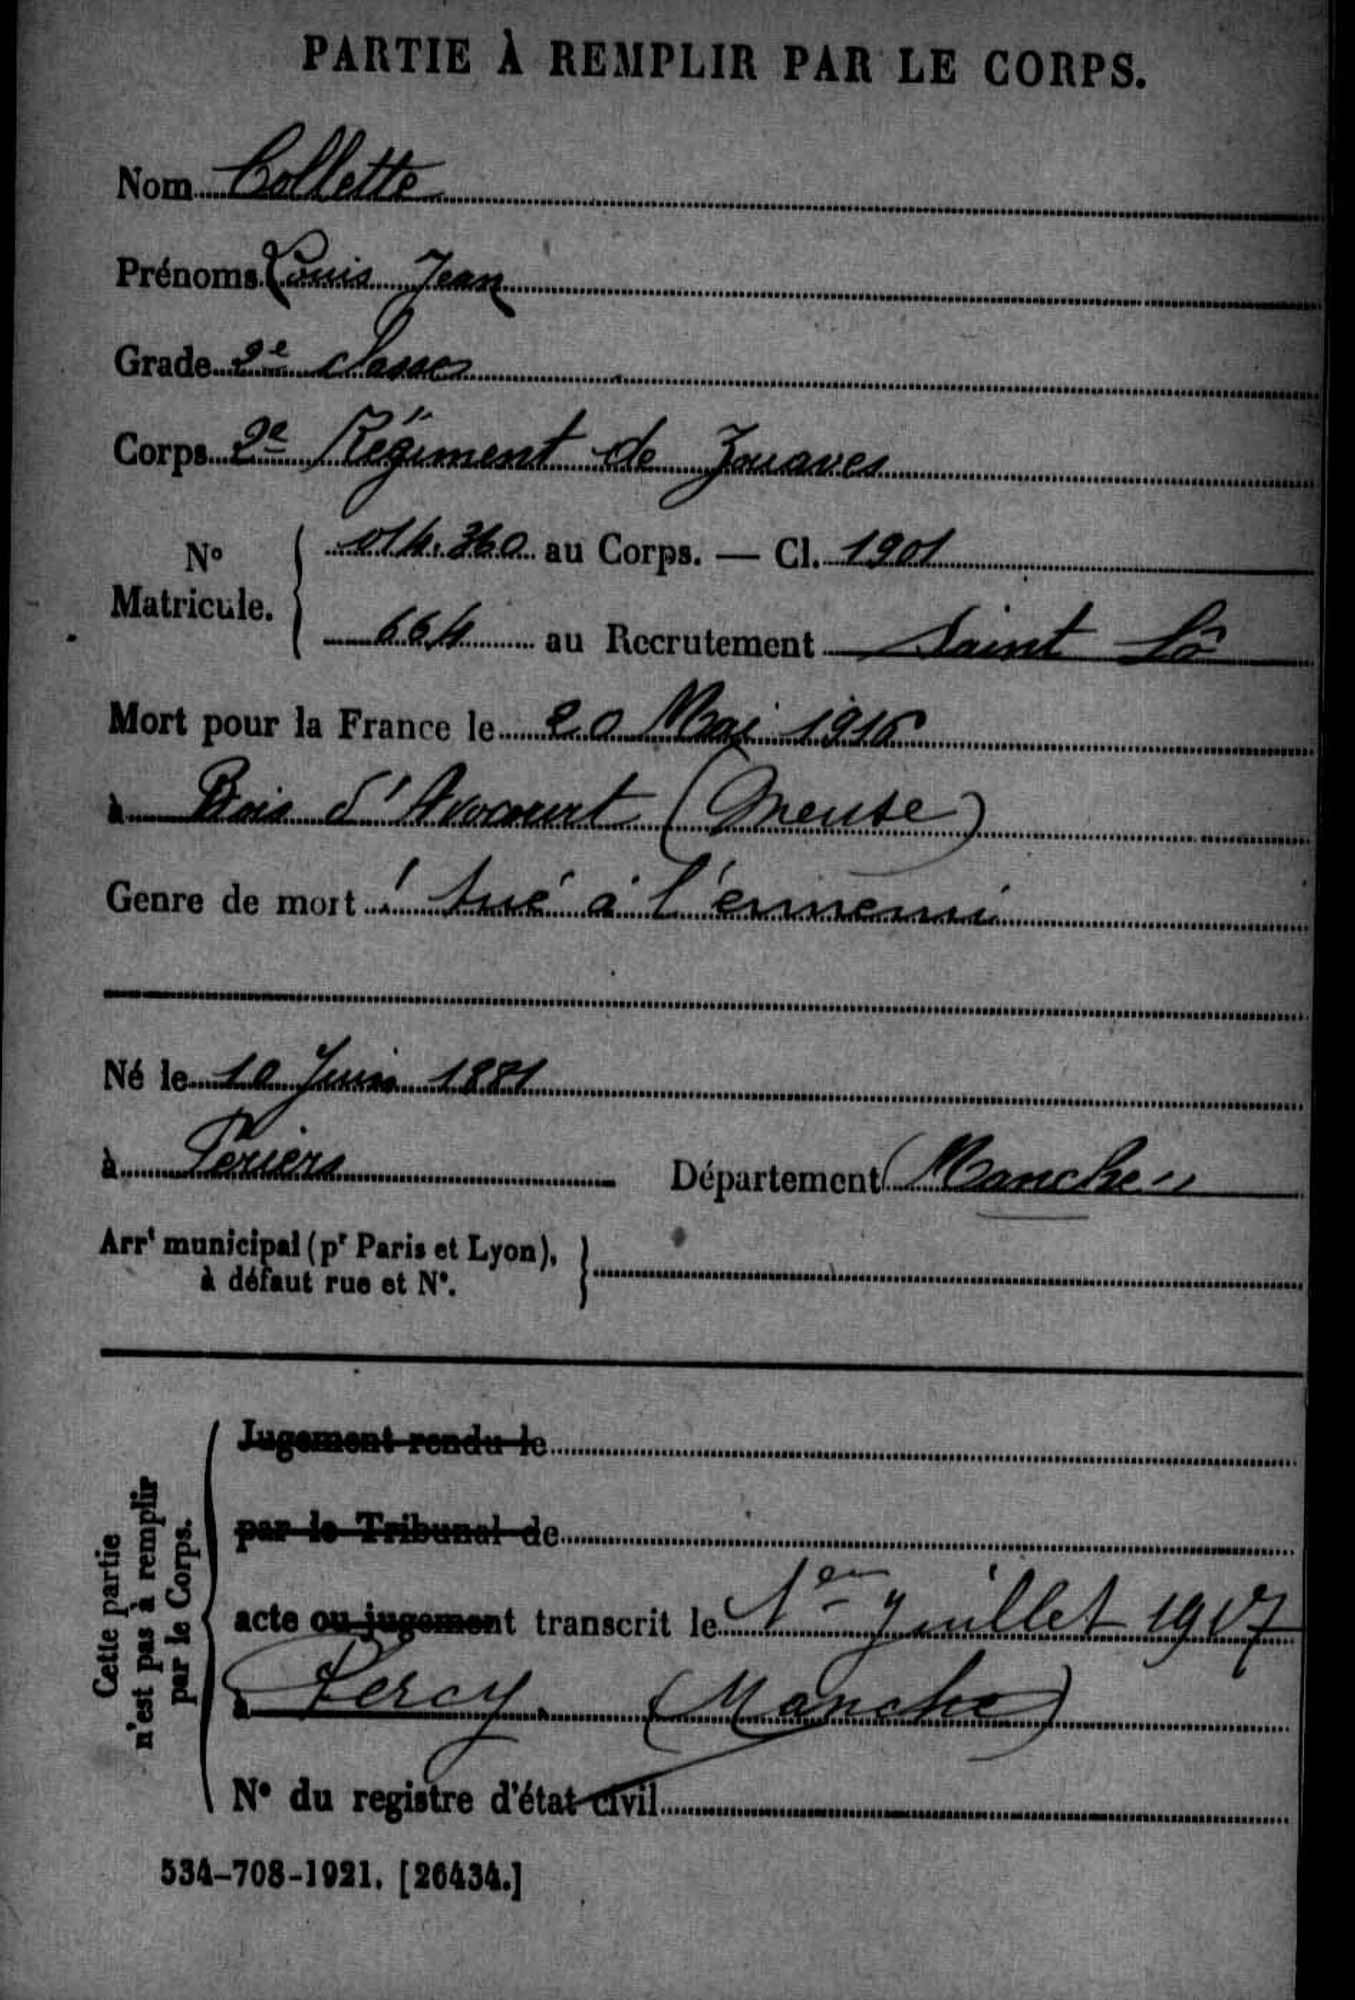 PARTIE À REMPLIR PAR LE CORPS.
Nom Collette
Prénoms Louis Jean
Grade 2e classe
Corps 2e Régiment de Zouaves
No Matricule. 014.360 au Corps. — Cl. 1901
664 au Recrutement Saint Lô
Mort pour la France le 20 Mai 1916
à Bois d'Avocourt (Meuse)
Genre de mort tué à l'ennemi
Né le 10 Juin 1881
à Periers Département Manche
Arrt municipal (pr Paris et Lyon),
à défaut rue et No.
Cette partie
n'est pas à remplir
par le Corps.
Jugement rendu le
par le Tribunal de
acte ou jugement transcrit le 1er Juillet 1917
à Percy (Manche)
No du registre d'état civil
534-708-1921. [26434.]